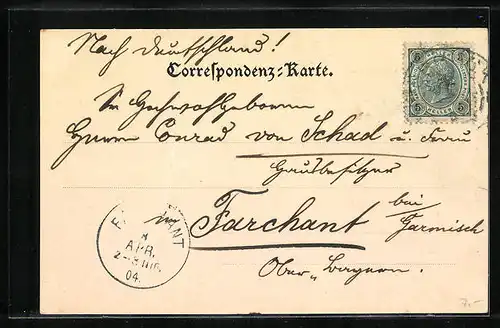 Nach Deutschland!
Correspondenz-Karte.
Sr Hochwohlgeboren
Herrn Conrad von Schad u. Frau
Gutsbesitzer
in Farchant bei
Garmisch
Ober-Bayern.
APR.
04.
7.-